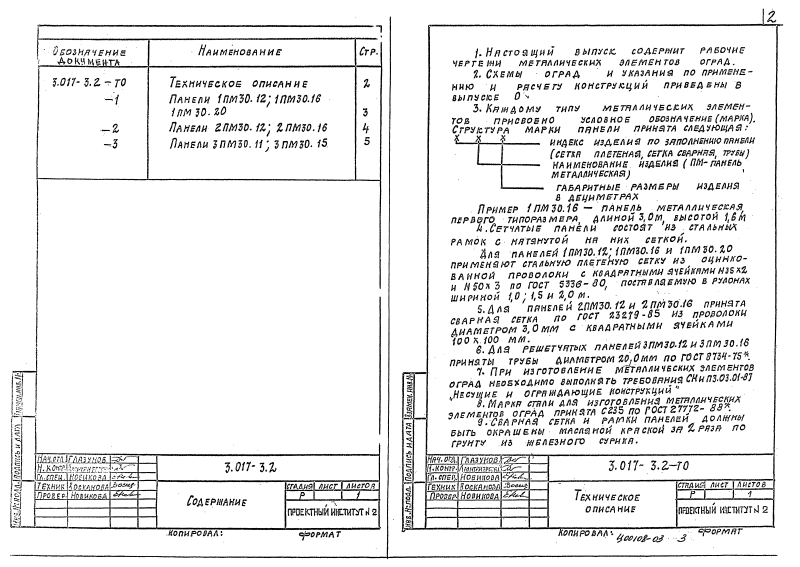 2
Обозначение документа
Наименование
Стр.
3.017-3.2-ТО Техническое описание 2
-1 Панели 1ПМ30.12; 1ПМ30.16
1ПМ30.20 3
-2 Панели 2ПМ30.12; 2ПМ30.16 4
-3 Панели 3ПМ30.11; 3ПМ30.15 5
Нач.отд. Глазунов
Н.контр.
Гл.спец. Новикова
Техник Восканова
Провер. Новикова
3.017-3.2
Содержание
Стадия Лист Листов
Р 1
Проектный институт №2
Копировал: Формат
Инв.№подл. Подпись и дата Взам.инв.№
1. Настоящий выпуск содержит рабочие
чертежи металлических элементов оград.
2. Схемы оград и указания по примене-
нию и расчету конструкций приведены в
выпуске 0
3. Каждому типу металлических элемен-
тов присвоено условное обозначение (марка).
Структура марки панели принята следующая:
Х Х Х
индекс изделия по заполнению панели
(сетка плетеная, сетка сварная, трубы)
наименование изделия (ПМ-панель
металлическая)
габаритные размеры изделия
в дециметрах
Пример 1ПМ30.16 — панель металлическая
первого типоразмера, длиной 3,0м, высотой 1,6м
4. Сетчатые панели состоят из стальных
рамок с натянутой на них сеткой.
Для панелей 1ПМ30.12; 1ПМ30.16 и 1ПМ30.20
применяют стальную плетеную сетку из оцинко-
ванной проволоки с квадратными ячейками Н35х2
и Н50х3 по ГОСТ 5336-80, поставляемую в рулонах
шириной 1,0; 1,5 и 2,0 м.
5. Для панелей 2ПМ30.12 и 2ПМ30.16 принята
сварная сетка по ГОСТ 23279-85 из проволоки
диаметром 3,0мм с квадратными ячейками
100х100 мм.
6. Для решетчатых панелей 3ПМ30.12 и 3ПМ30.16
приняты трубы диаметром 20,0мм по ГОСТ 8734-75*.
7. При изготовление металлических элементов
оград необходимо выполнять требования СНиП3.03.01-87
„Несущие и ограждающие конструкций"
8. Марка стали для изготовления металлических
элементов оград принята С235 по ГОСТ 27772-88*.
9. Сварная сетка и рамки панелей должны
быть окрашены масляной краской за 2 раза по
грунту из железного сурика.
Нач.отд. Глазунов
Н.контр.
Гл.спец. Новикова
Техник Восканова
Провер. Новикова
3.017-3.2-ТО
Техническое
описание
Стадия Лист Листов
Р 1
Проектный институт №2
Копировал: Формат
Ц00108-03 3
Инв.№подл. Подпись и дата Взамен.инв.№